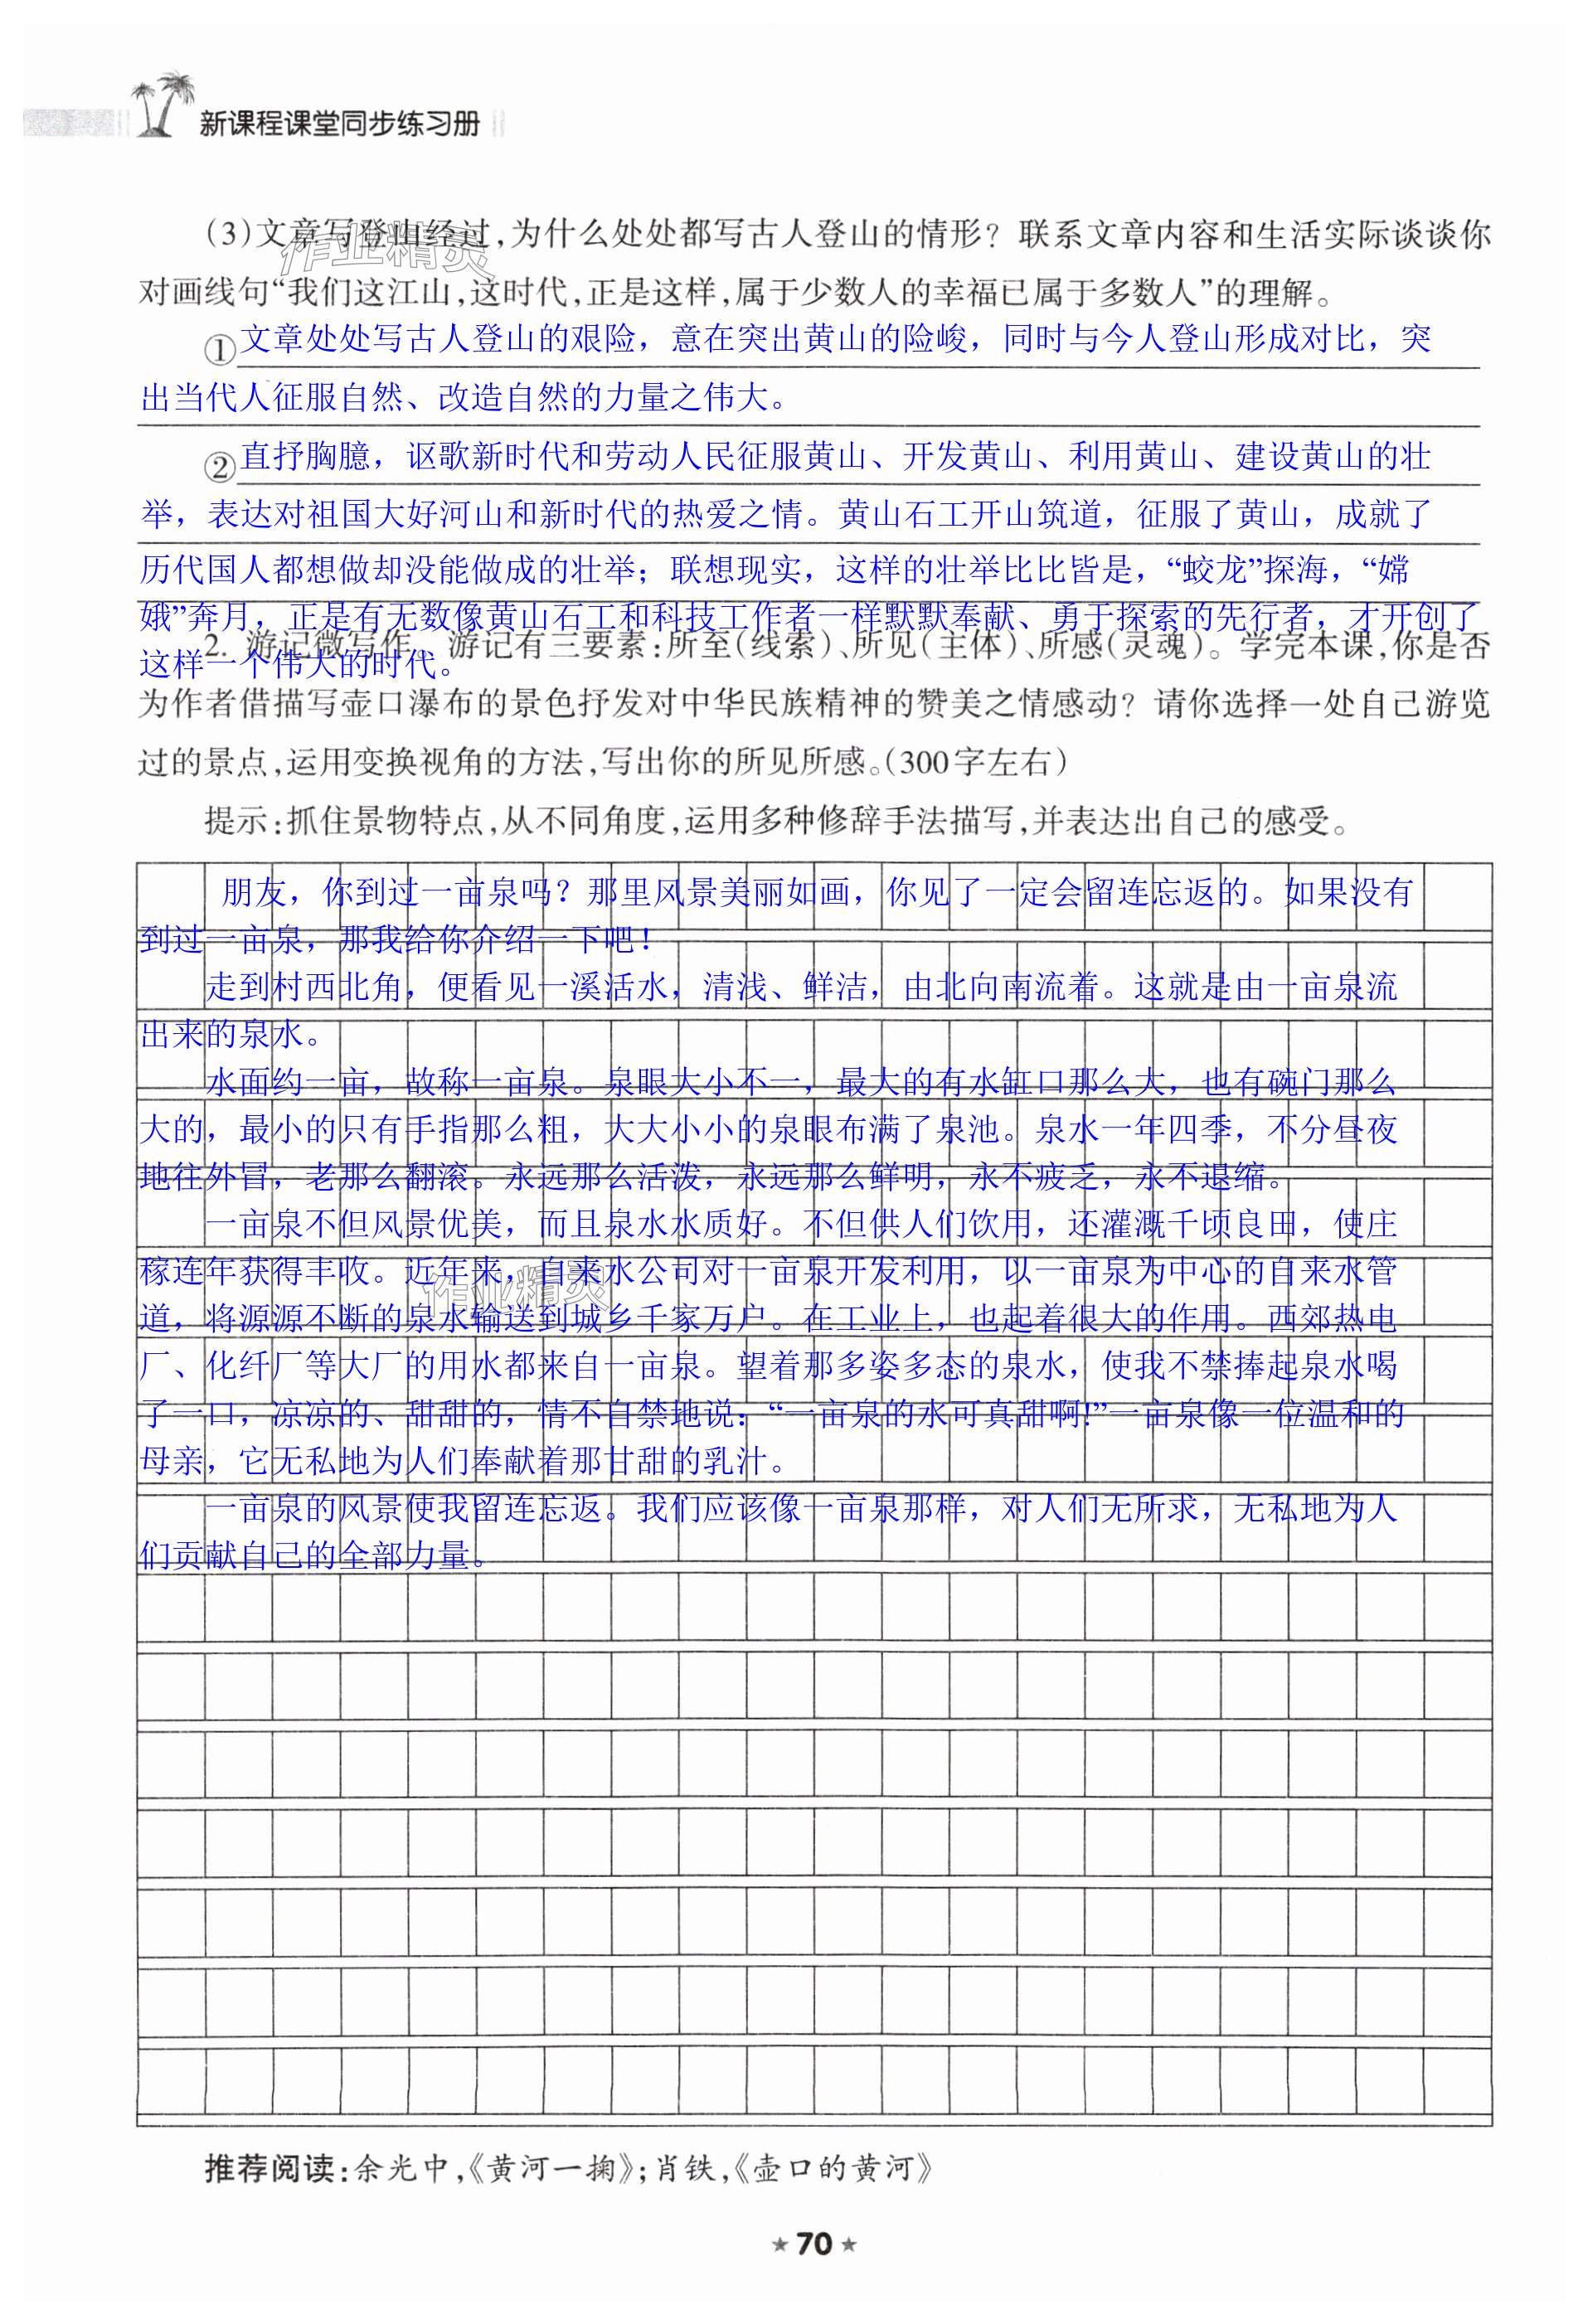 新课程课堂同步练习册
(3)文章写登山经过,为什么处处都写古人登山的情形？联系文章内容和生活实际谈谈你
作业精灵
对画线句“我们这江山,这时代,正是这样,属于少数人的幸福已属于多数人”的理解。
①文章处处写古人登山的艰险，意在突出黄山的险峻，同时与今人登山形成对比，突
出当代人征服自然、改造自然的力量之伟大。
②直抒胸臆，讴歌新时代和劳动人民征服黄山、开发黄山、利用黄山、建设黄山的壮
举，表达对祖国大好河山和新时代的热爱之情。黄山石工开山筑道，征服了黄山，成就了
历代国人都想做却没能做成的壮举；联想现实，这样的壮举比比皆是，“蛟龙”探海，“嫦
娥”奔月，正是有无数像黄山石工和科技工作者一样默默奉献、勇于探索的先行者，才开创了
2. 游记微写作。游记有三要素:所至(线索)、所见(主体)、所感(灵魂)。学完本课,你是否
这样一个伟大的时代。
为作者借描写壶口瀑布的景色抒发对中华民族精神的赞美之情感动？请你选择一处自己游览
过的景点,运用变换视角的方法,写出你的所见所感。(300字左右)
提示:抓住景物特点,从不同角度,运用多种修辞手法描写,并表达出自己的感受。
朋友，你到过一亩泉吗？那里风景美丽如画，你见了一定会留连忘返的。如果没有
到过一亩泉，那我给你介绍一下吧！
走到村西北角，便看见一溪活水，清浅、鲜洁，由北向南流着。这就是由一亩泉流
出来的泉水。
水面约一亩，故称一亩泉。泉眼大小不一，最大的有水缸口那么大，也有碗门那么
大的，最小的只有手指那么粗，大大小小的泉眼布满了泉池。泉水一年四季，不分昼夜
地往外冒，老那么翻滚。永远那么活泼，永远那么鲜明，永不疲乏，永不退缩。
一亩泉不但风景优美，而且泉水水质好。不但供人们饮用，还灌溉千顷良田，使庄
稼连年获得丰收。近年来，自来水公司对一亩泉开发利用，以一亩泉为中心的自来水管
作业精灵
道，将源源不断的泉水输送到城乡千家万户。在工业上，也起着很大的作用。西郊热电
厂、化纤厂等大厂的用水都来自一亩泉。望着那多姿多态的泉水，使我不禁捧起泉水喝
了一口，凉凉的、甜甜的，情不自禁地说：“一亩泉的水可真甜啊!”一亩泉像一位温和的
母亲，它无私地为人们奉献着那甘甜的乳汁。
一亩泉的风景使我留连忘返。我们应该像一亩泉那样，对人们无所求，无私地为人
们贡献自己的全部力量。
推荐阅读:余光中,《黄河一掬》;肖铁,《壶口的黄河》
★ 70 ★